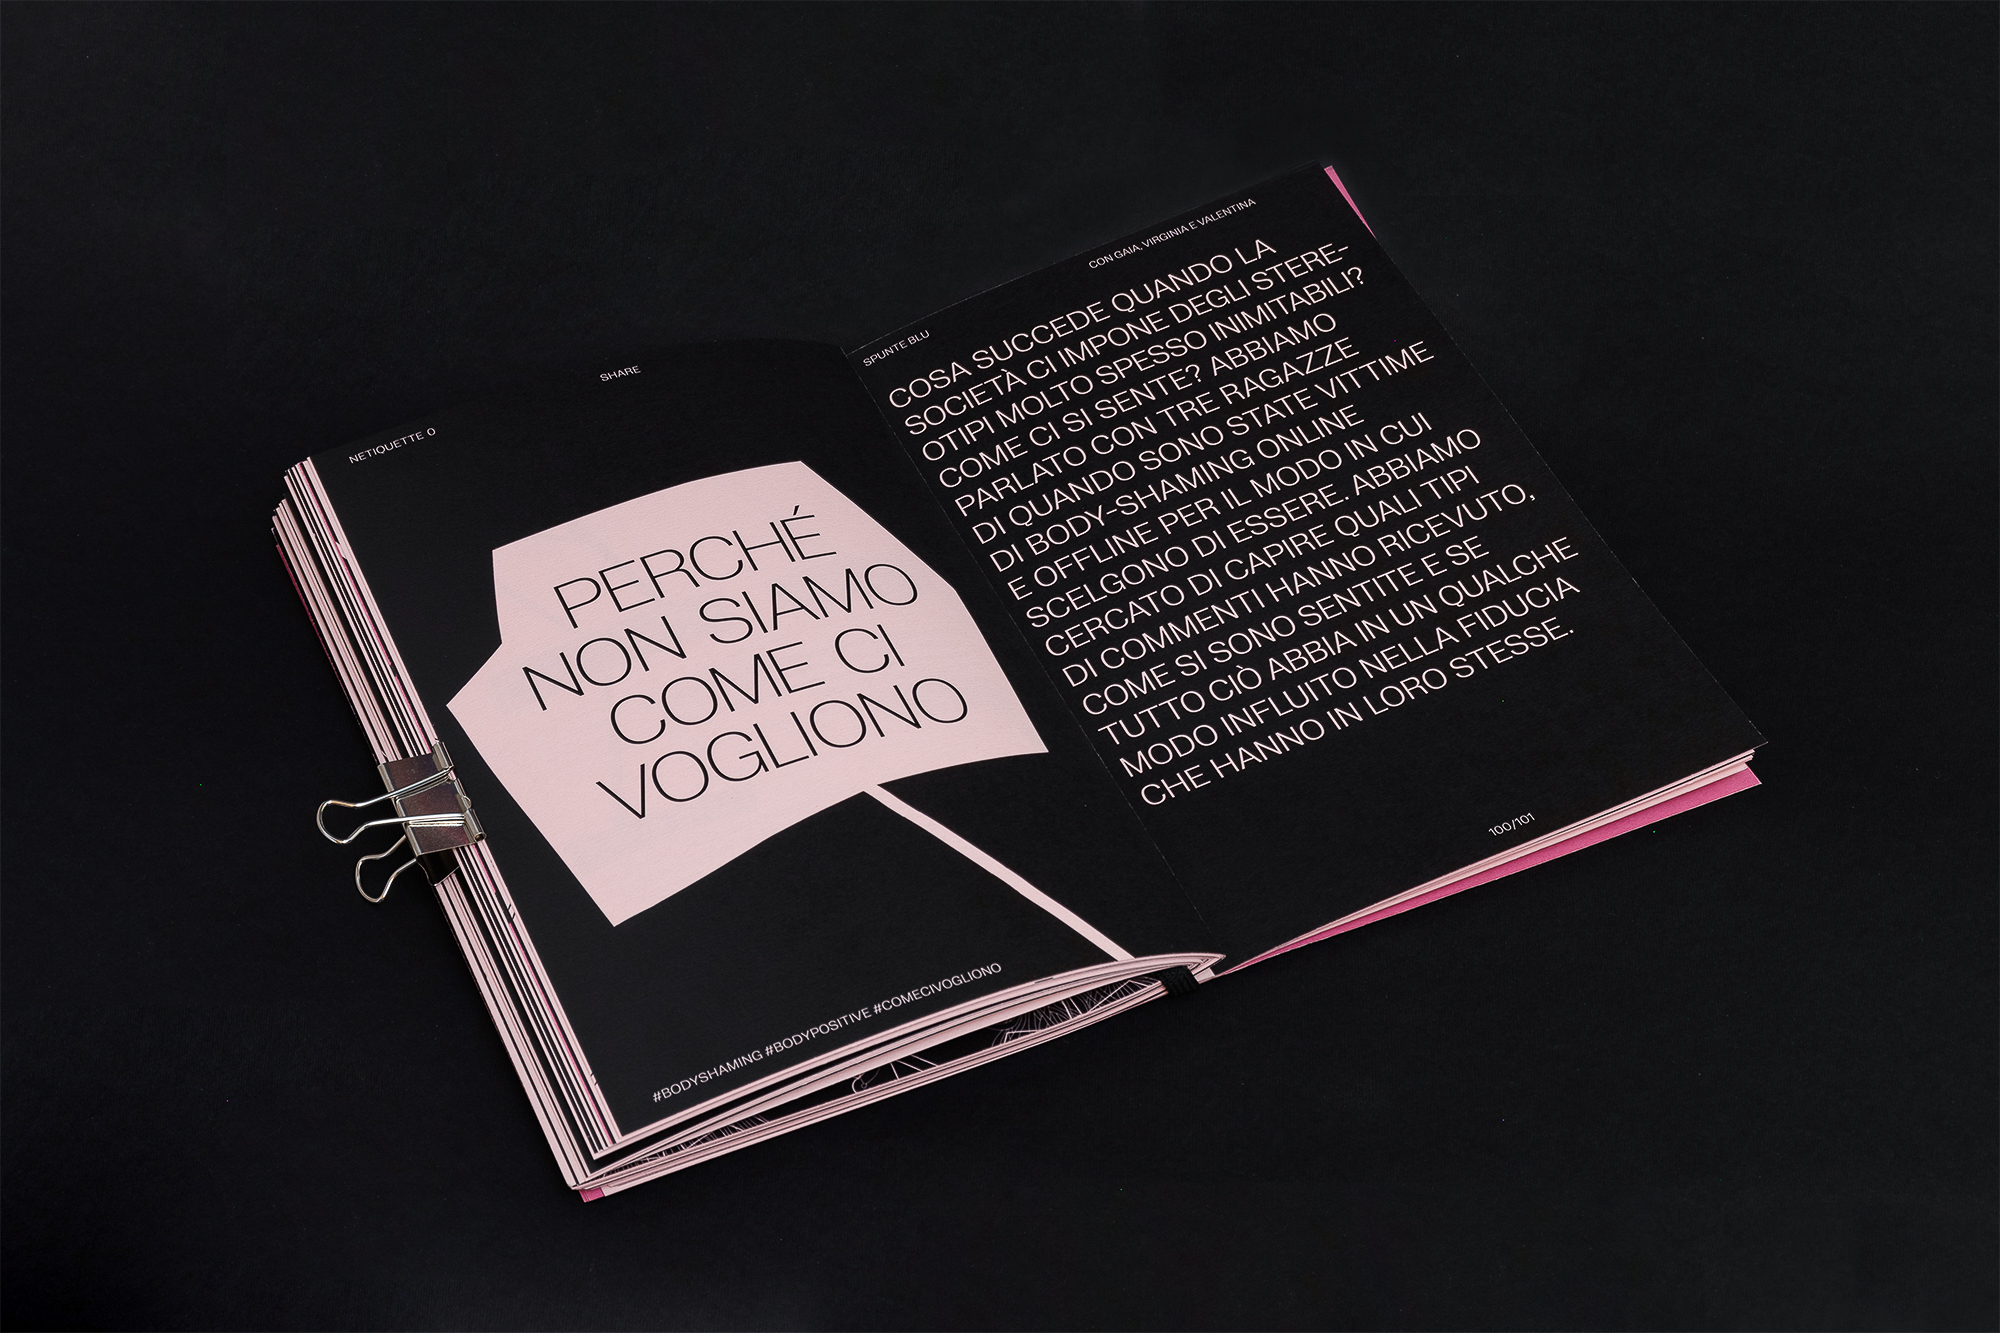 NETIQUETTE 0
SHARE
PERCHÉ
NON SIAMO
COME CI
VOGLIONO
#BODYSHAMING #BODYPOSITIVE #COMECIVOGLIONO
SPUNTE BLU
CON GAIA, VIRGINIA E VALENTINA
COSA SUCCEDE QUANDO LA
SOCIETÀ CI IMPONE DEGLI STERE-
OTIPI MOLTO SPESSO INIMITABILI?
COME CI SI SENTE? ABBIAMO
PARLATO CON TRE RAGAZZE
DI QUANDO SONO STATE VITTIME
DI BODY-SHAMING ONLINE
E OFFLINE PER IL MODO IN CUI
SCELGONO DI ESSERE. ABBIAMO
CERCATO DI CAPIRE QUALI TIPI
DI COMMENTI HANNO RICEVUTO,
COME SI SONO SENTITE E SE
TUTTO CIÒ ABBIA IN UN QUALCHE
MODO INFLUITO NELLA FIDUCIA
CHE HANNO IN LORO STESSE.
100/101